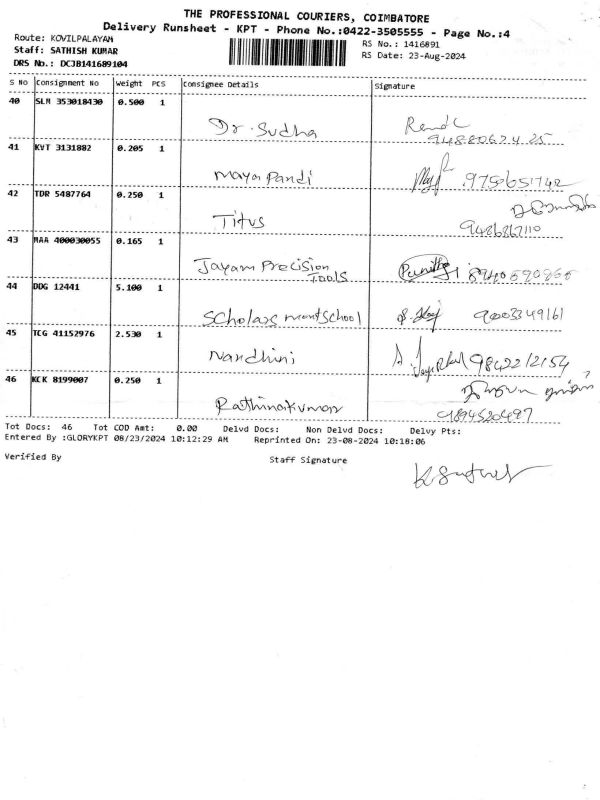 THE PROFESSIONAL COURIERS, COIMBATORE
Delivery Runsheet - KPT - Phone No.:0422-3505555 - Page No.:4
Route: KOVILPALAYAM
Staff: SATHISH KUMAR
DRS No.: DCJB141689104
RS No.: 1416891
RS Date: 23-Aug-2024
S No Consignment No Weight PCS Consignee Details Signature
40 SLM 353018430 0.500 1
Dr. Sudha
41 KVT 3131882 0.205 1
Maya Pandi 9750651742
42 TDR 5487764 0.250 1
Titus 9486867110
43 MAA 400030055 0.165 1
Jayam Precision
Tools
44 DDG 12441 5.100 1
Scholars mont School 9003349161
45 TCG 41152976 2.530 1
Nandhini 9842212154
46 KCK 8199007 0.250 1
Rathinakumar 9894520497
Tot Docs: 46 Tot COD Amt: 0.00 Delvd Docs: Non Delvd Docs: Delvy Pts:
Entered By :GLORYKPT 08/23/2024 10:12:29 AM Reprinted On: 23-08-2024 10:18:06
Verified By Staff Signature